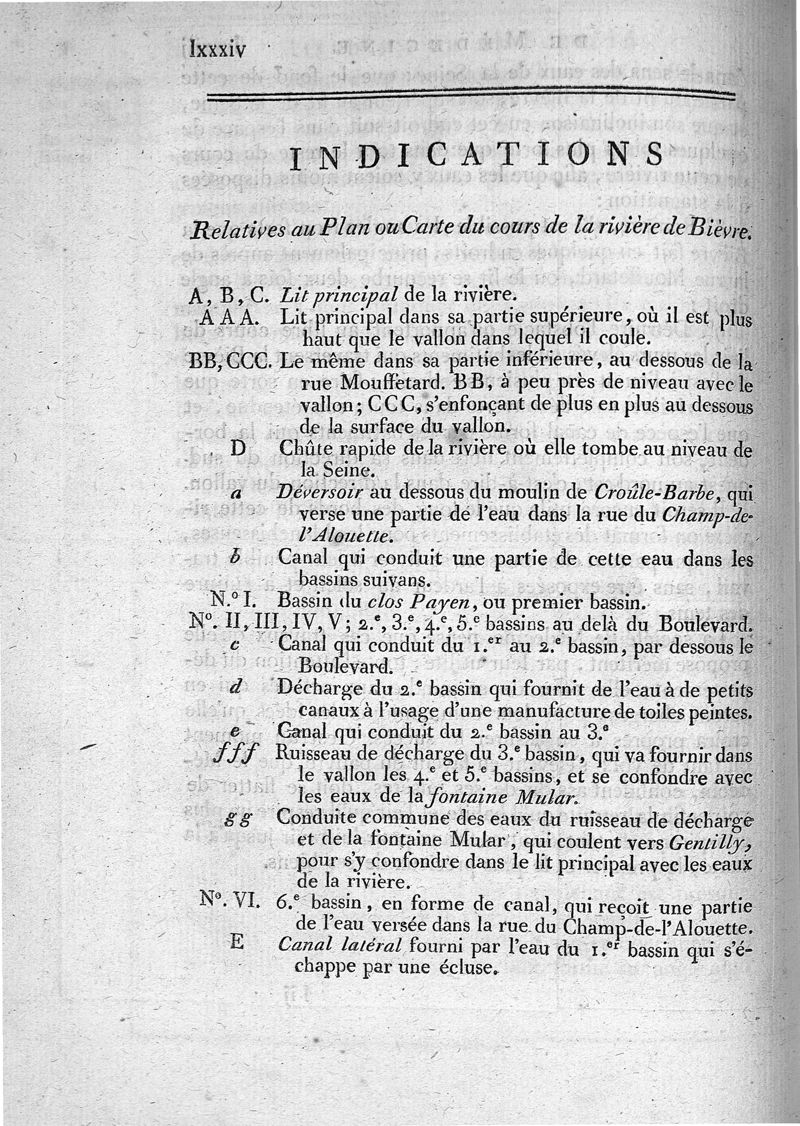 lxxxiv
INDICATIONS
Relatives au Plan ou Carte du cours de la rivière de Bièvre.
A, B, C. Lit principal de la rivière.
A A A. Lit principal dans sa partie supérieure, où il est plus
haut que le vallon dans lequel il coule.
BB, CCC. Le même dans sa partie inférieure, au dessous de la
rue Mouffetard. BB, à peu près de niveau avec le
vallon; CCC, s'enfonçant de plus en plus au dessous
de la surface du vallon.
D Chûte rapide de la rivière où elle tombe au niveau de
la Seine.
a Déversoir au dessous du moulin de Croille-Barbe, qui
verse une partie de l'eau dans la rue du Champ-de-
l'Alouette.
b Canal qui conduit une partie de cette eau dans les
bassins suivans.
N.° I. Bassin du clos Payen, ou premier bassin.
N°. II, III, IV, V; 2.e, 3.e, 4.e, 5.e bassins au delà du Boulevard.
c Canal qui conduit du 1.er au 2.e bassin, par dessous le
Boulevard.
d Décharge du 2.e bassin qui fournit de l'eau à de petits
canaux à l'usage d'une manufacture de toiles peintes.
e Canal qui conduit du 2.e bassin au 3.e
fff Ruisseau de décharge du 3.e bassin, qui va fournir dans
le vallon les 4.e et 5.e bassins, et se confondre avec
les eaux de la fontaine Mular.
gg Conduite commune des eaux du ruisseau de décharge
et de la fontaine Mular, qui coulent vers Gentilly,
pour s'y confondre dans le lit principal avec les eaux
de la rivière.
N°. VI. 6.e bassin, en forme de canal, qui reçoit une partie
de l'eau versée dans la rue du Champ-de-l'Alouette.
E Canal latéral fourni par l'eau du 1.er bassin qui s'é-
chappe par une écluse.